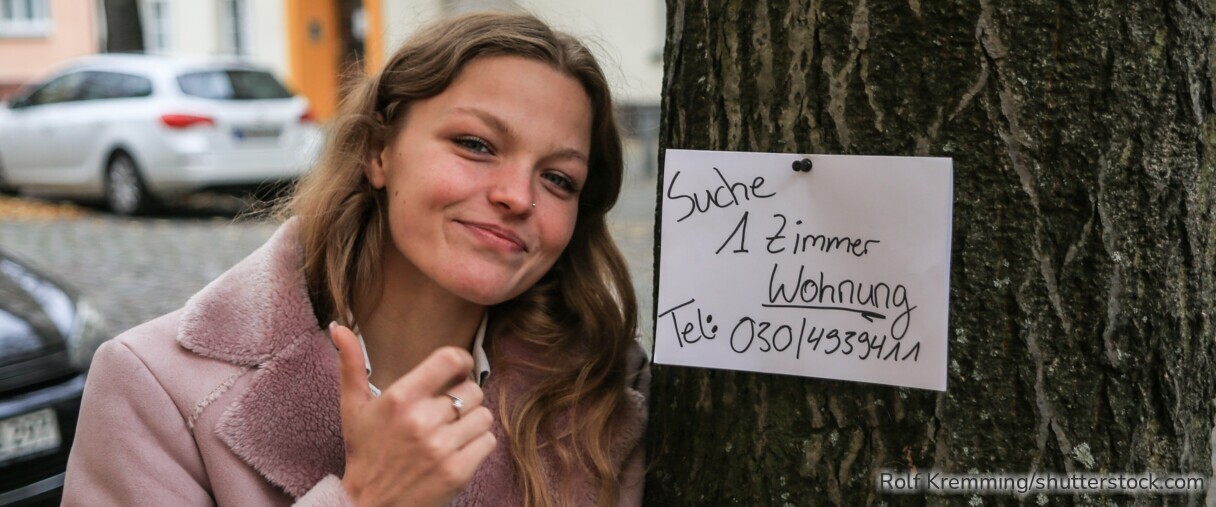 Suche
1 Zimmer
Wohnung
Tel: 030/4939411
Rolf Kremming/shutterstock.com